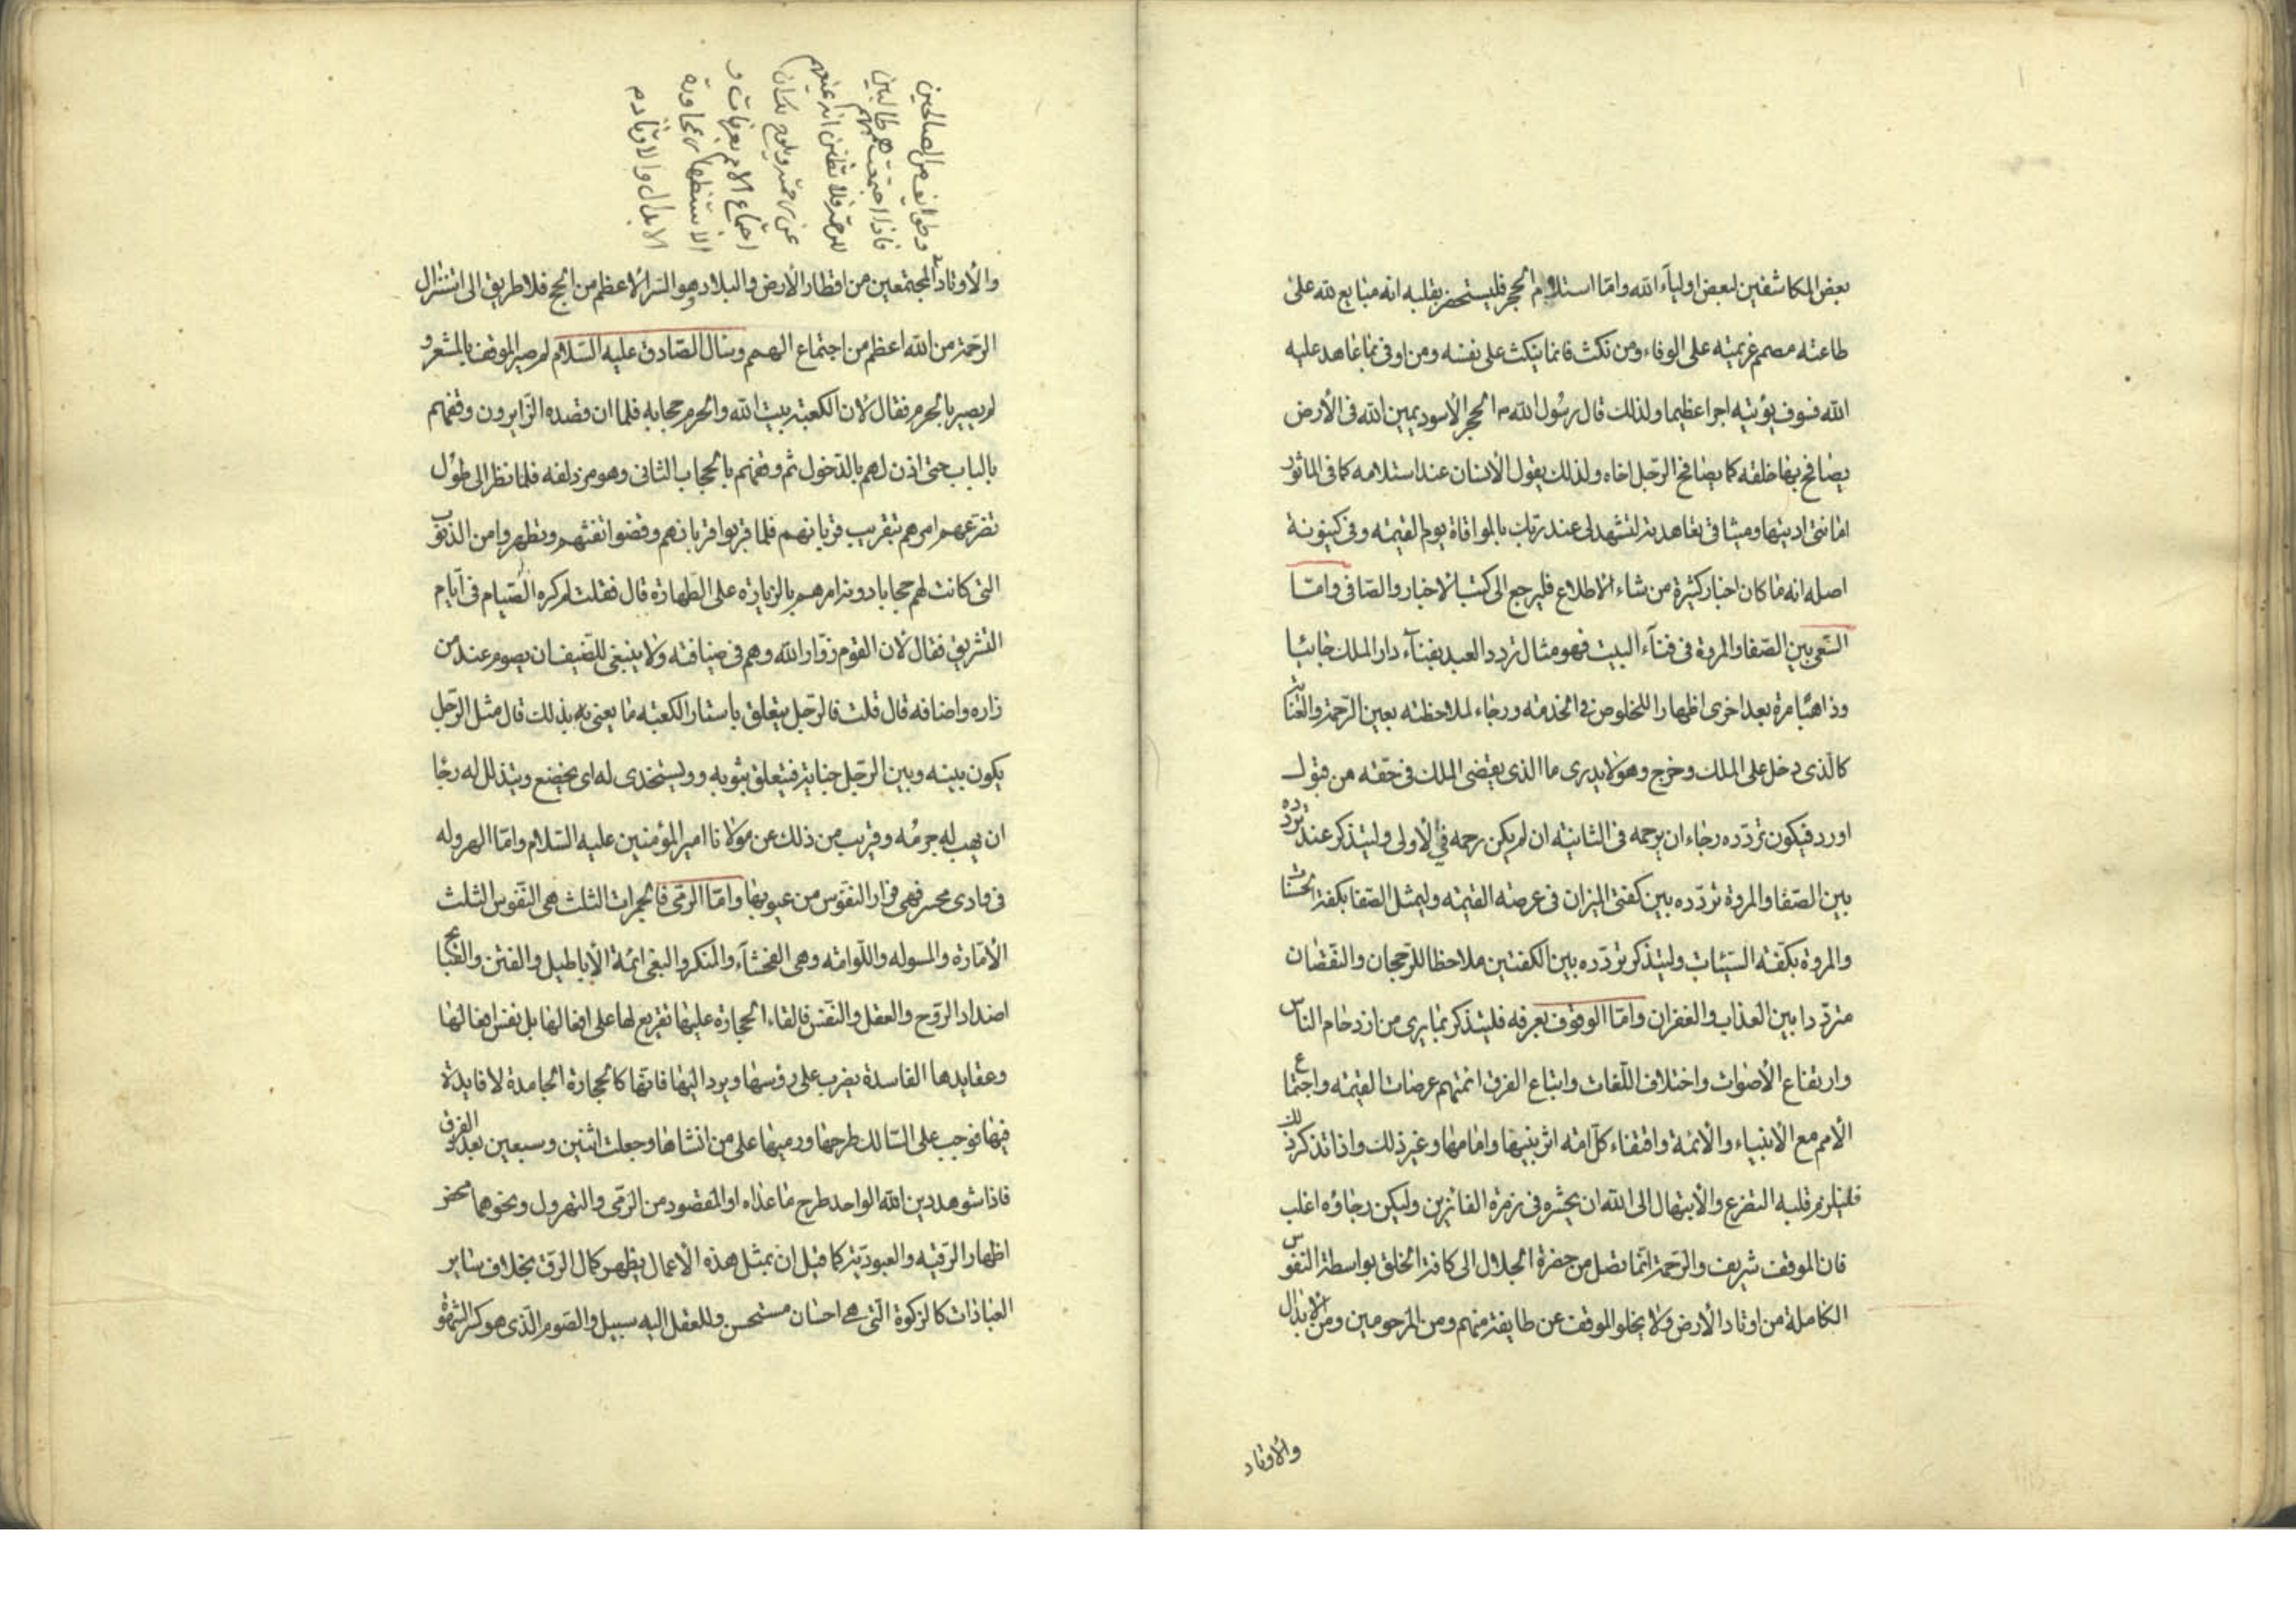 بعض المكاشفين لبعض اولياء الله واما استلام الحجر فليستحضر بقلبه انه مبايع لله على
طاعته مصمم عزيمته على الوفاء ومن نكث فانما ينكث على نفسه ومن اوفى بما عاهد عليه
الله فسوف يؤتيه اجرا عظيما ولذلك قال رسول الله ص الحجر الأسود يمين الله فى الأرض
يصافح بها خلقه كما يصافح الرجل اخاه ولذلك يقول الأنسان عند استلامه كما فى الماثور
امانتى اديتها وميثاقى تعاهدته لتشهد لى عند ربك بالموافاة يوم القيمه وفى كينونة
اصله انه ما كان اخبار كثيرة من شاء الاطلاع فليرجع الى كتب الاخبار والصافى وامّا
السعى بين الصفا والمروة فى فناء البيت فهو مثال تردد العبد بفناء دار الملك جائيا
وذاهبا مرة بعد اخرى اظهارا للخلوص فى الخدمته ورجاء لملاحظته بعين الرحمة والعناية
كالذى دخل على الملك وخرج وهو لا يدرى ما الذى يقضى الملك فى حقه من قبول
اورد فيكون تردده رجاء ان يرحمه فى الثانيه ان لم يكن رحمه فى الأولى وليتذكر عند تردده
بين الصفا والمروة تردده بين كفتى الميزان فى عرصه القيمه وليمثل الصفا بكفة الحسنات
والمروة بكفة السيئات وليتذكر تردده بين الكفتين ملاحظا للرجحان والنقصان
مترددا بين العذاب والغفران واما الوقوف بعرفه فليتذكر بما يرى من ازدحام الناس
وارتفاع الأصوات واختلاف اللغات واتباع الفرق ائمتهم عرصات القيمه واجتماع
الأمم مع الأنبياء والأئمة واقتفاء كل امه اثر نبيها وامامها وغير ذلك واذا تذكر ذلك
فليلزم قلبه التضرع والأبتهال الى الله ان يحشره فى زمرة الفائزين وليكن رجاؤه اغلب
فان الموقف شريف والرحمة انما تصل من حضرة الجلال الى كافة الخلق بواسطة النفوس
الكاملة من اوتاد الأرض ولا يخلو الموقف عن طايفة منهم ومن المرحومين ومن الأبدال
والاوتاد
وطوائف من الصالحين
فاذا اجتمعت هممهم طالبين
للرحمة فلا تظنن انه
اجتماع الامم بعرفات و
الاستظهار بمجاورة
الابدال والاوتاد م
والأوتاد المجتمعين من اقطار الأرض والبلاد وهو السر الأعظم من الحج فلا طريق الى استنزال
الرحمة من الله اعظم من اجتماع الهمم وسئال الصادق عليه السلام لم صير الموقف بالمشعر و
لم يصير بالحرم فقال لان الكعبة بيت الله والحرم حجابه فلما ان قصده الزايرون وقفهم
بالباب حتى اذن لهم بالدخول ثم وقفهم بالحجاب الثانى وهو مزدلفه فلما نظر الى طول
تضرعهم امرهم بتقريب قربانهم فلما قربوا قربانهم وقضوا تفثهم وتطهروا من الذنوب
التى كانت لهم حجابا دونه امرهم بالزيارة على الطهارة قال فقلت لم كره الصيام فى ايام
التشريق فقال لان القوم زوار الله وهم فى ضيافته ولا ينبغى للضيف ان يصوم عند من
زاره واضافه قال قلت فالرجل يتعلق باستار الكعبه ما يعنى به بذلك قال مثل الرجل
يكون بينه وبين الرجل جناية فيتعلق بثوبه ويستخدى له اى يخضع ويتذلل له رجا
ان يهب له جرمه وقريب من ذلك عن مولانا امير المؤمنين عليه السلام واما الهروله
فى وادى محسر فهى فرار النفوس من عيوبها واما الرمى فالجمرات الثلث هى النفوس الثلث
الأمارة والمسوله واللوامه وهى الفحشاء والمنكر والبغى ائمة الأباطيل والفتن
اضداد الروح والعقل والنفس فالقاء الحجارة عليها تقريع لها على افعالها بل نفس افعالها
وعقايدها الفاسدة يضرب على رؤسها ويرد اليها فانها كالحجارة الجامدة لا فايدة
فيها فوجب على السالك طرحها ورميها على من انشاها وجعلت اثنين وسبعين بعدد الفرق
فاذا شوهد دين الله الواحد طرح ما عداه او المقصود من الرمى والتهرول ونحوهما محض
اظهار الرقيه والعبودية كما قيل ان بمثل هذه الأعمال يظهر كمال الرق بخلاف ساير
العبادات كالزكوة التى هى احسان مستحسن وللعقل اليه سبيل والصوم الذى هو كسر الشهوة